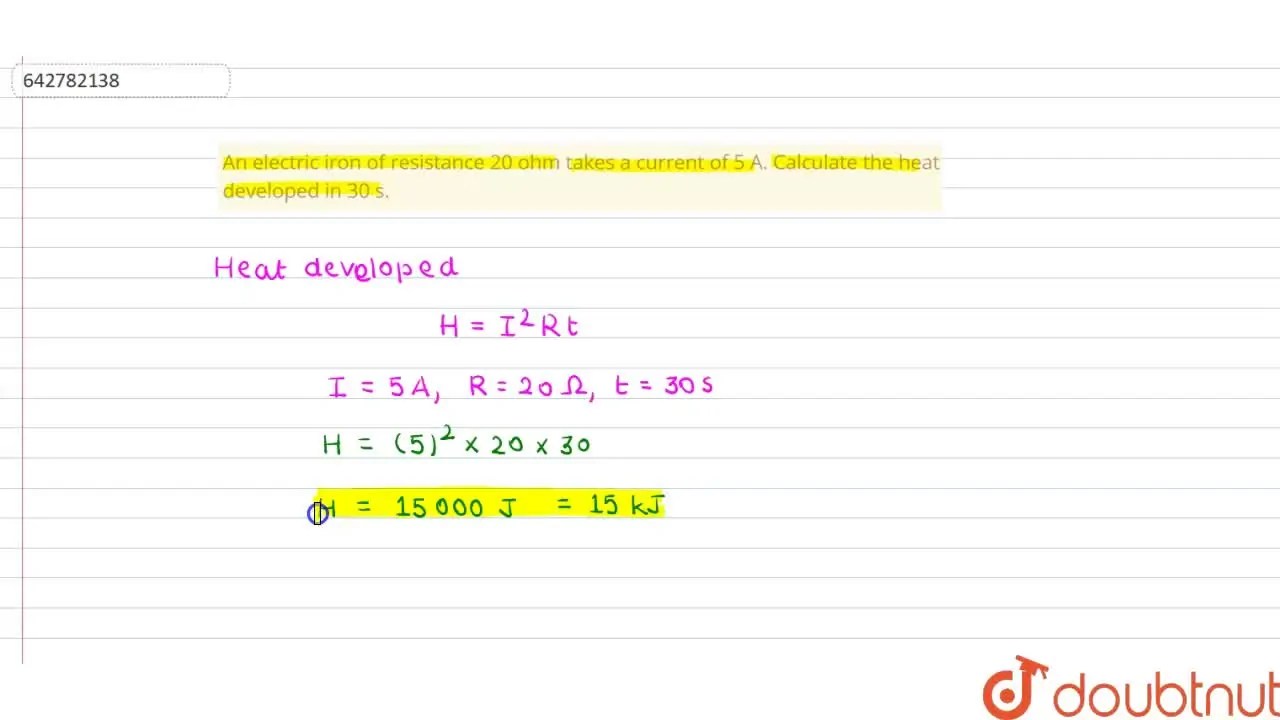 642782138
An electric iron of resistance 20 ohm takes a current of 5 A. Calculate the heat
developed in 30 s.
Heat developed
H = I²Rt
I = 5A, R = 20 Ω, t = 30s
H = (5)² × 20 × 30
H = 15000 J = 15 kJ
doubtnut